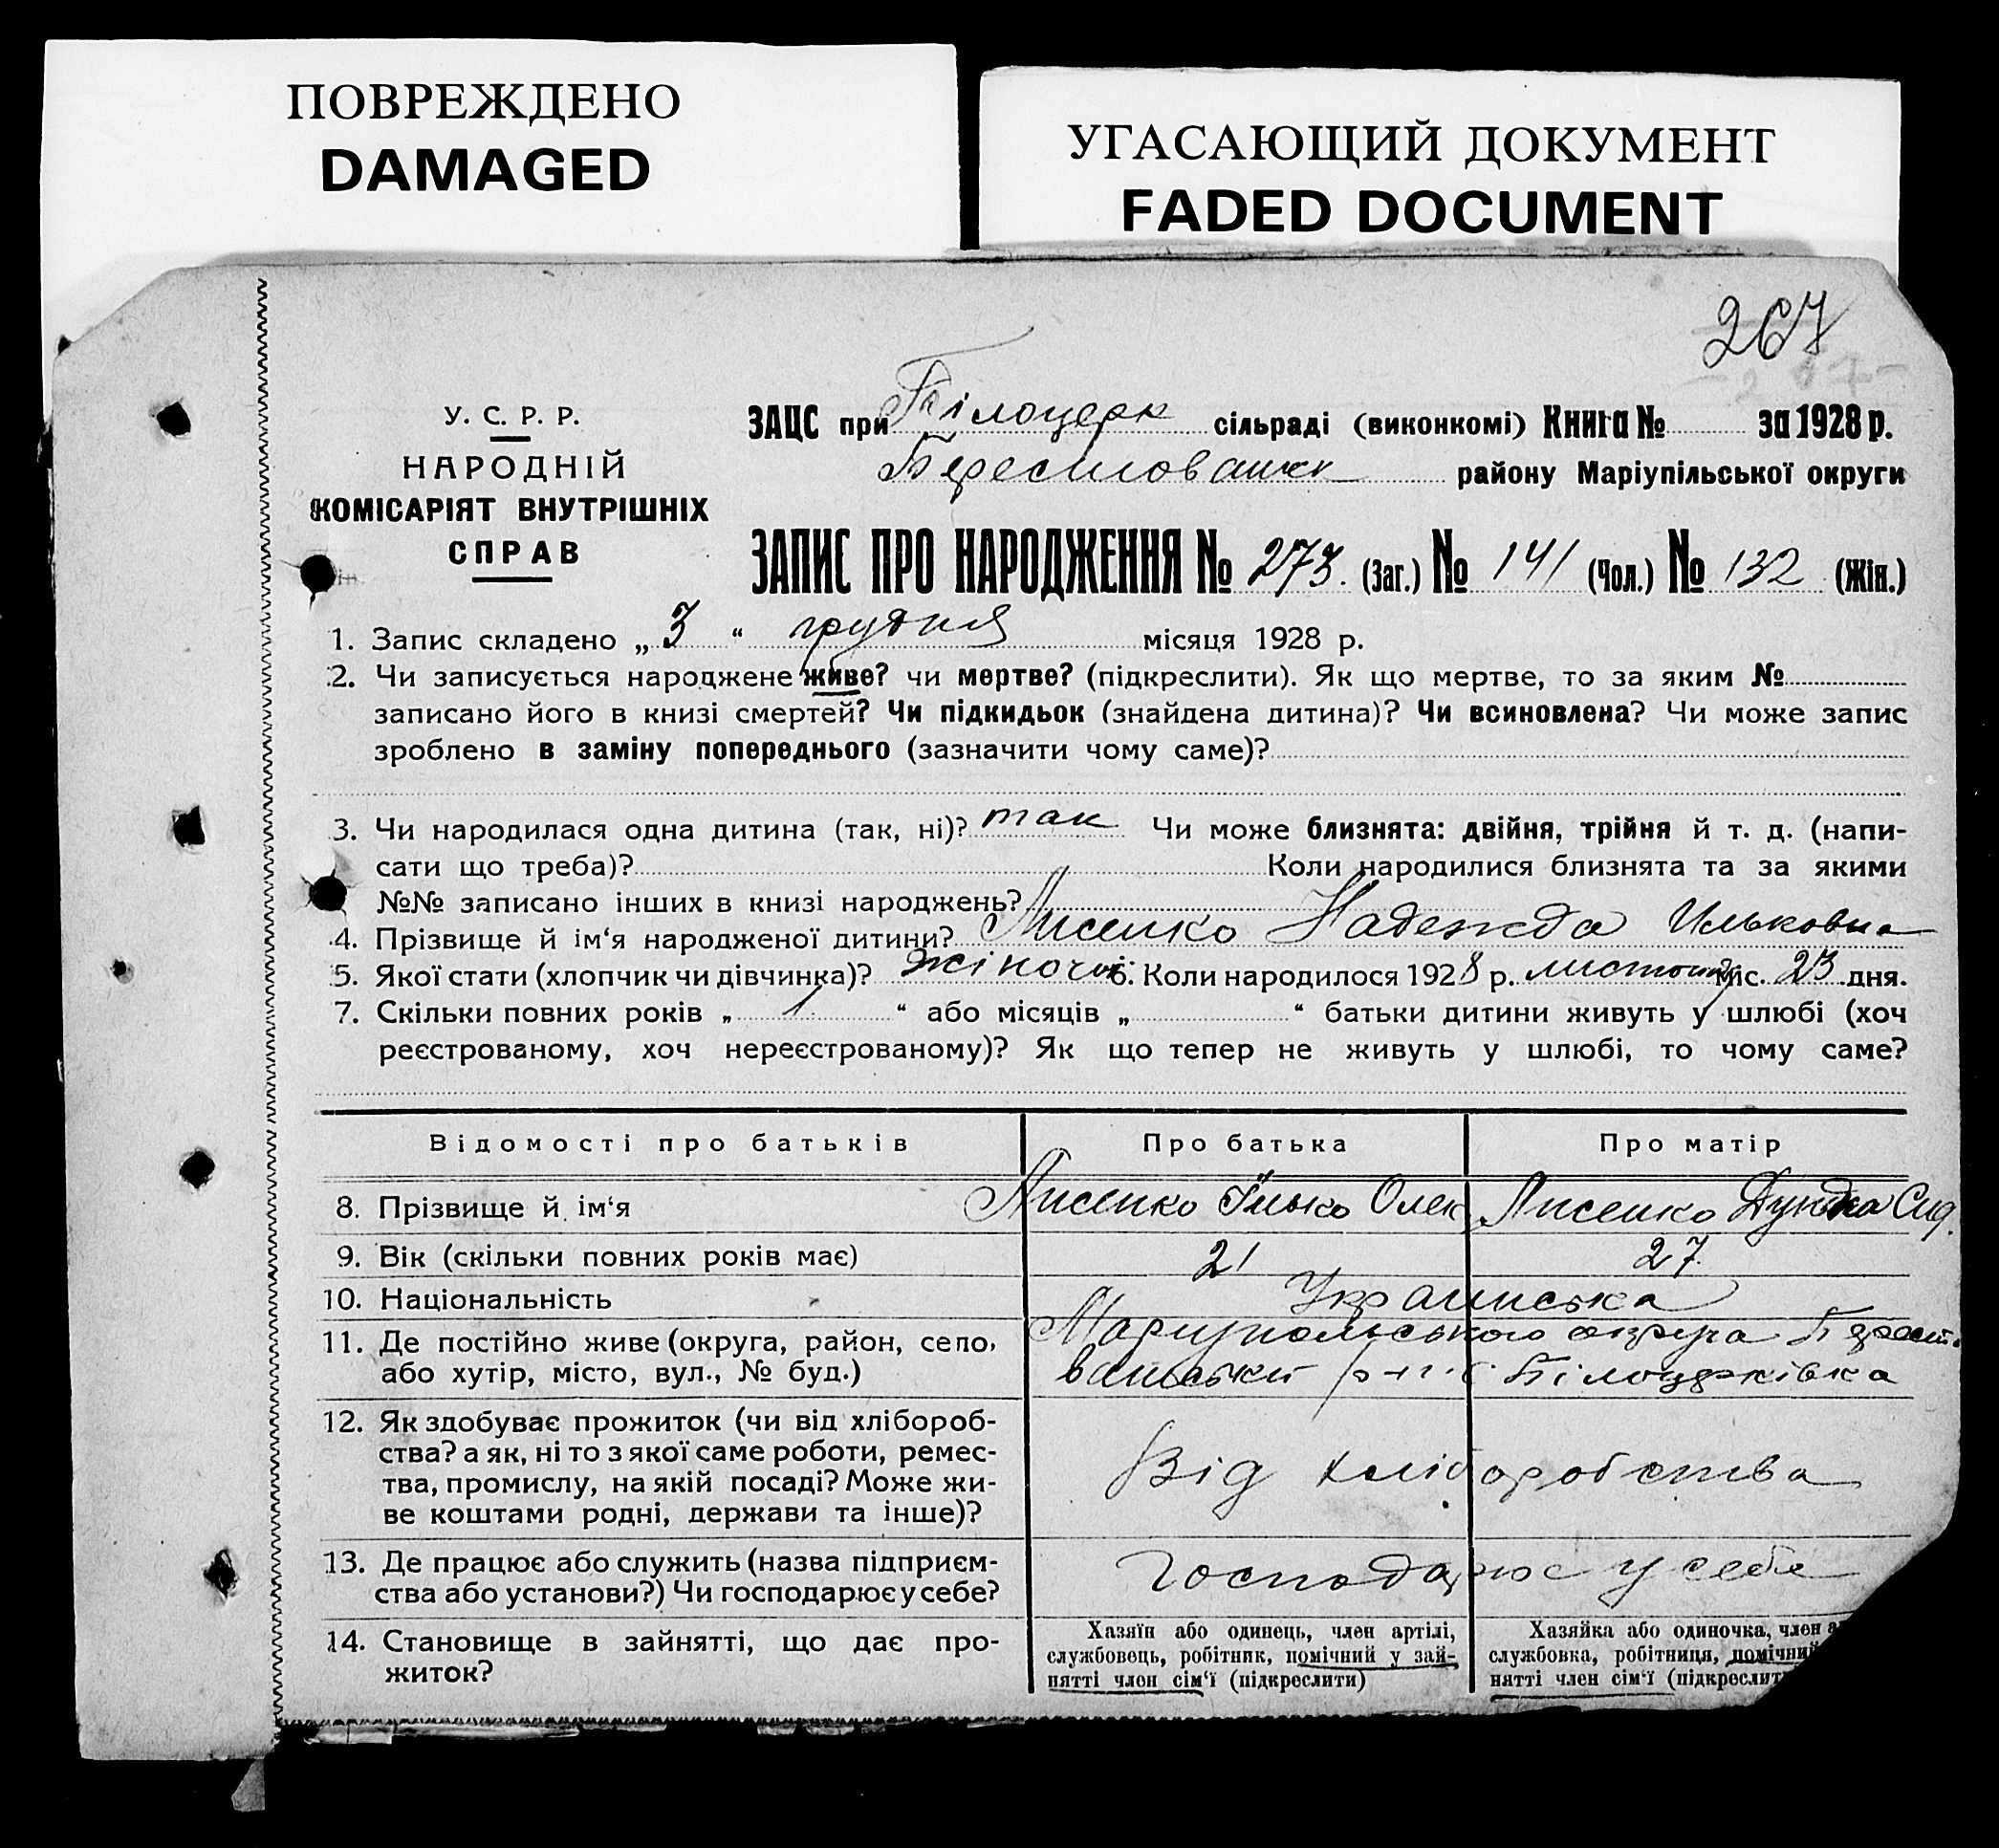 ПОВРЕЖДЕНО
DAMAGED
УГАСАЮЩИЙ ДОКУМЕНТ
FADED DOCUMENT
267
У. С. Р. Р.
НАРОДНІЙ
КОМІСАРІЯТ ВНУТРІШНІХ
СПРАВ
ЗАЦС при Білоцерк сільраді (виконкомі) Книга № за 1928 р.
Берестованськ району Маріупільської округи
ЗАПИС ПРО НАРОДЖЕННЯ № 273. (Заг.) № 141 (Чол.) № 132 (Жін.)
1. Запис складено „ 3 “ грудня місяця 1928 р.
2. Чи записується народжене живе? чи мертве? (підкреслити). Як що мертве, то за яким №
записано його в книзі смертей? Чи підкидьок (знайдена дитина)? Чи всиновлена? Чи може запис
зроблено в заміну попереднього (зазначити чому саме)?
3. Чи народилася одна дитина (так, ні)? так Чи може близнята: двійня, трійня й т. д. (напи-
сати що треба)? Коли народилися близнята та за якими
№№ записано інших в книзі народжень?
4. Прізвище й ім‘я народженої дитини? Лисенко Надежда Ильковна
5. Якої стати (хлопчик чи дівчинка)? жіночої 6. Коли народилося 1928 р. листопад міс. 23 дня.
7. Скільки повних років „ 1. “ або місяців „ “ батьки дитини живуть у шлюбі (хоч
реєстрованому, хоч нереєстрованому)? Як що тепер не живуть у шлюбі, то чому саме?
Відомості про батьків Про батька Про матір
8. Прізвище й ім‘я Лисенко Ілько Олек Лисенко Дунька Сид.
9. Вік (скільки повних років має) 21 27.
10. Національність Украинська
11. Де постійно живе (округа, район, село, Мариупольського округа Берест.
або хутір, місто, вул., № буд.) ванський р-н с. Білоцерківка
12. Як здобуває прожиток (чи від хлібороб-
ства? а як, ні то з якої саме роботи, ремес-
тва, промислу, на якій посаді? Може жи-
ве коштами родні, держави та інше)?
Від хліборобства
13. Де працює або служить (назва підприєм-
ства або установи?) Чи господарює у себе?
Господарює у себе
14. Становище в зайнятті, що дає про-
житок?
Хазяїн або одинець, член артілі,
службовець, робітник, помічний у зай-
нятті член сім‘ї (підкреслити)
Хазяйка або одиночка, член а
службовка, робітниця, помічний
нятті член сім‘ї (підкреслит